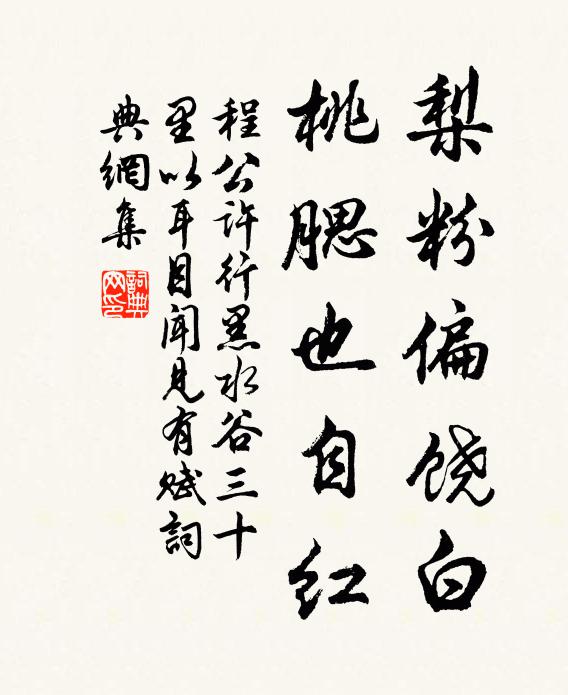 梨粉偏饶白
桃腮也自红
程公许行黑水谷三十
里以耳目闻见有赋詞
典網集
詞典网印